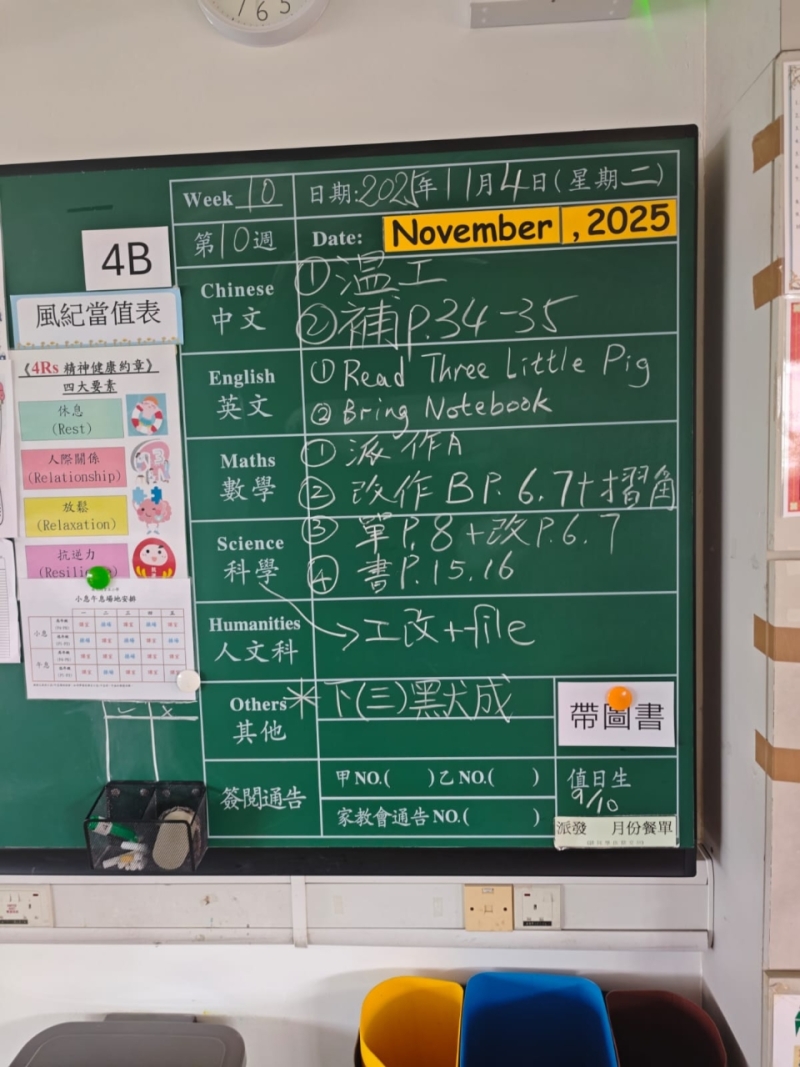 7 6 5
Week 10 日期:2025年11月4日(星期二)
第10週 Date: November , 2025
4B
風紀當值表
《4Rs 精神健康約章》
四大要素
休息
(Rest)
人際關係
(Relationship)
放鬆
(Relaxation)
抗逆力
小息午息場地安排
一 二 三 四 五
小息
午息
Chinese
中文
①溫工
②補P.34-35
English
英文
① Read Three Little Pig
② Bring Notebook
Maths
數學
① 派作A
② 改作B P.6.7+摺角
③ 單P.8+改P.6.7
④ 書P.15.16
Science
科學
Humanities
人文科
工改+file
Others
其他
*下(三)默犬成
帶圖書
簽閱通告
甲NO.( )乙NO.( )
家教會通告NO.( )
值日生
9/10
派發 月份餐單